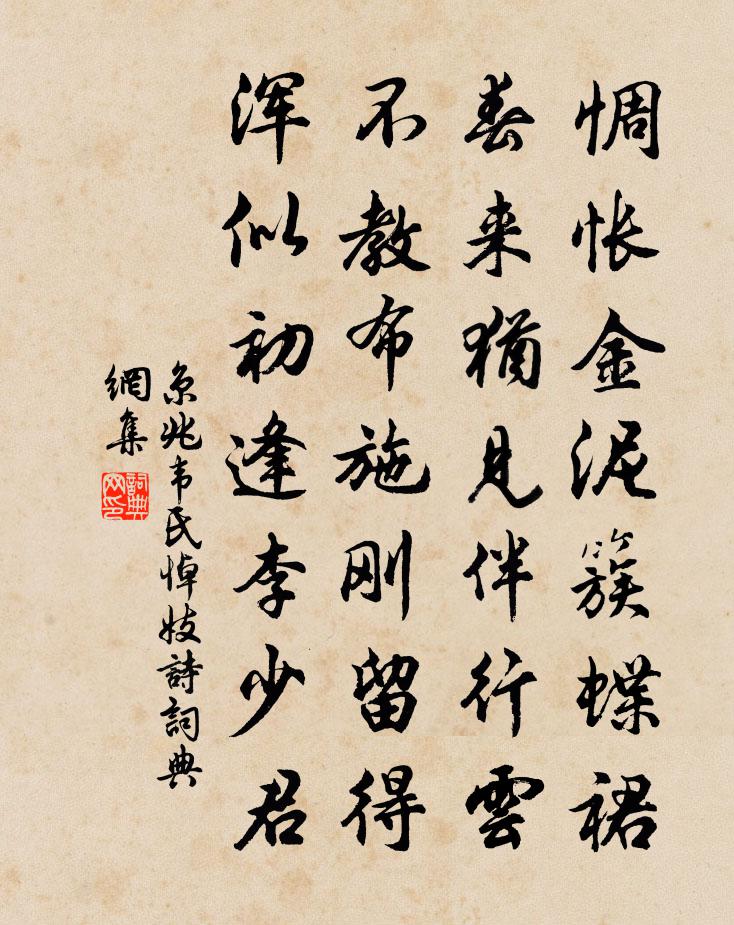 惆怅金泥簇蝶裙
春来犹見伴行雲
不教布施刚留得
浑似初逢李少君
京兆韦氏悼妓詩詞典
網集
詞典網印